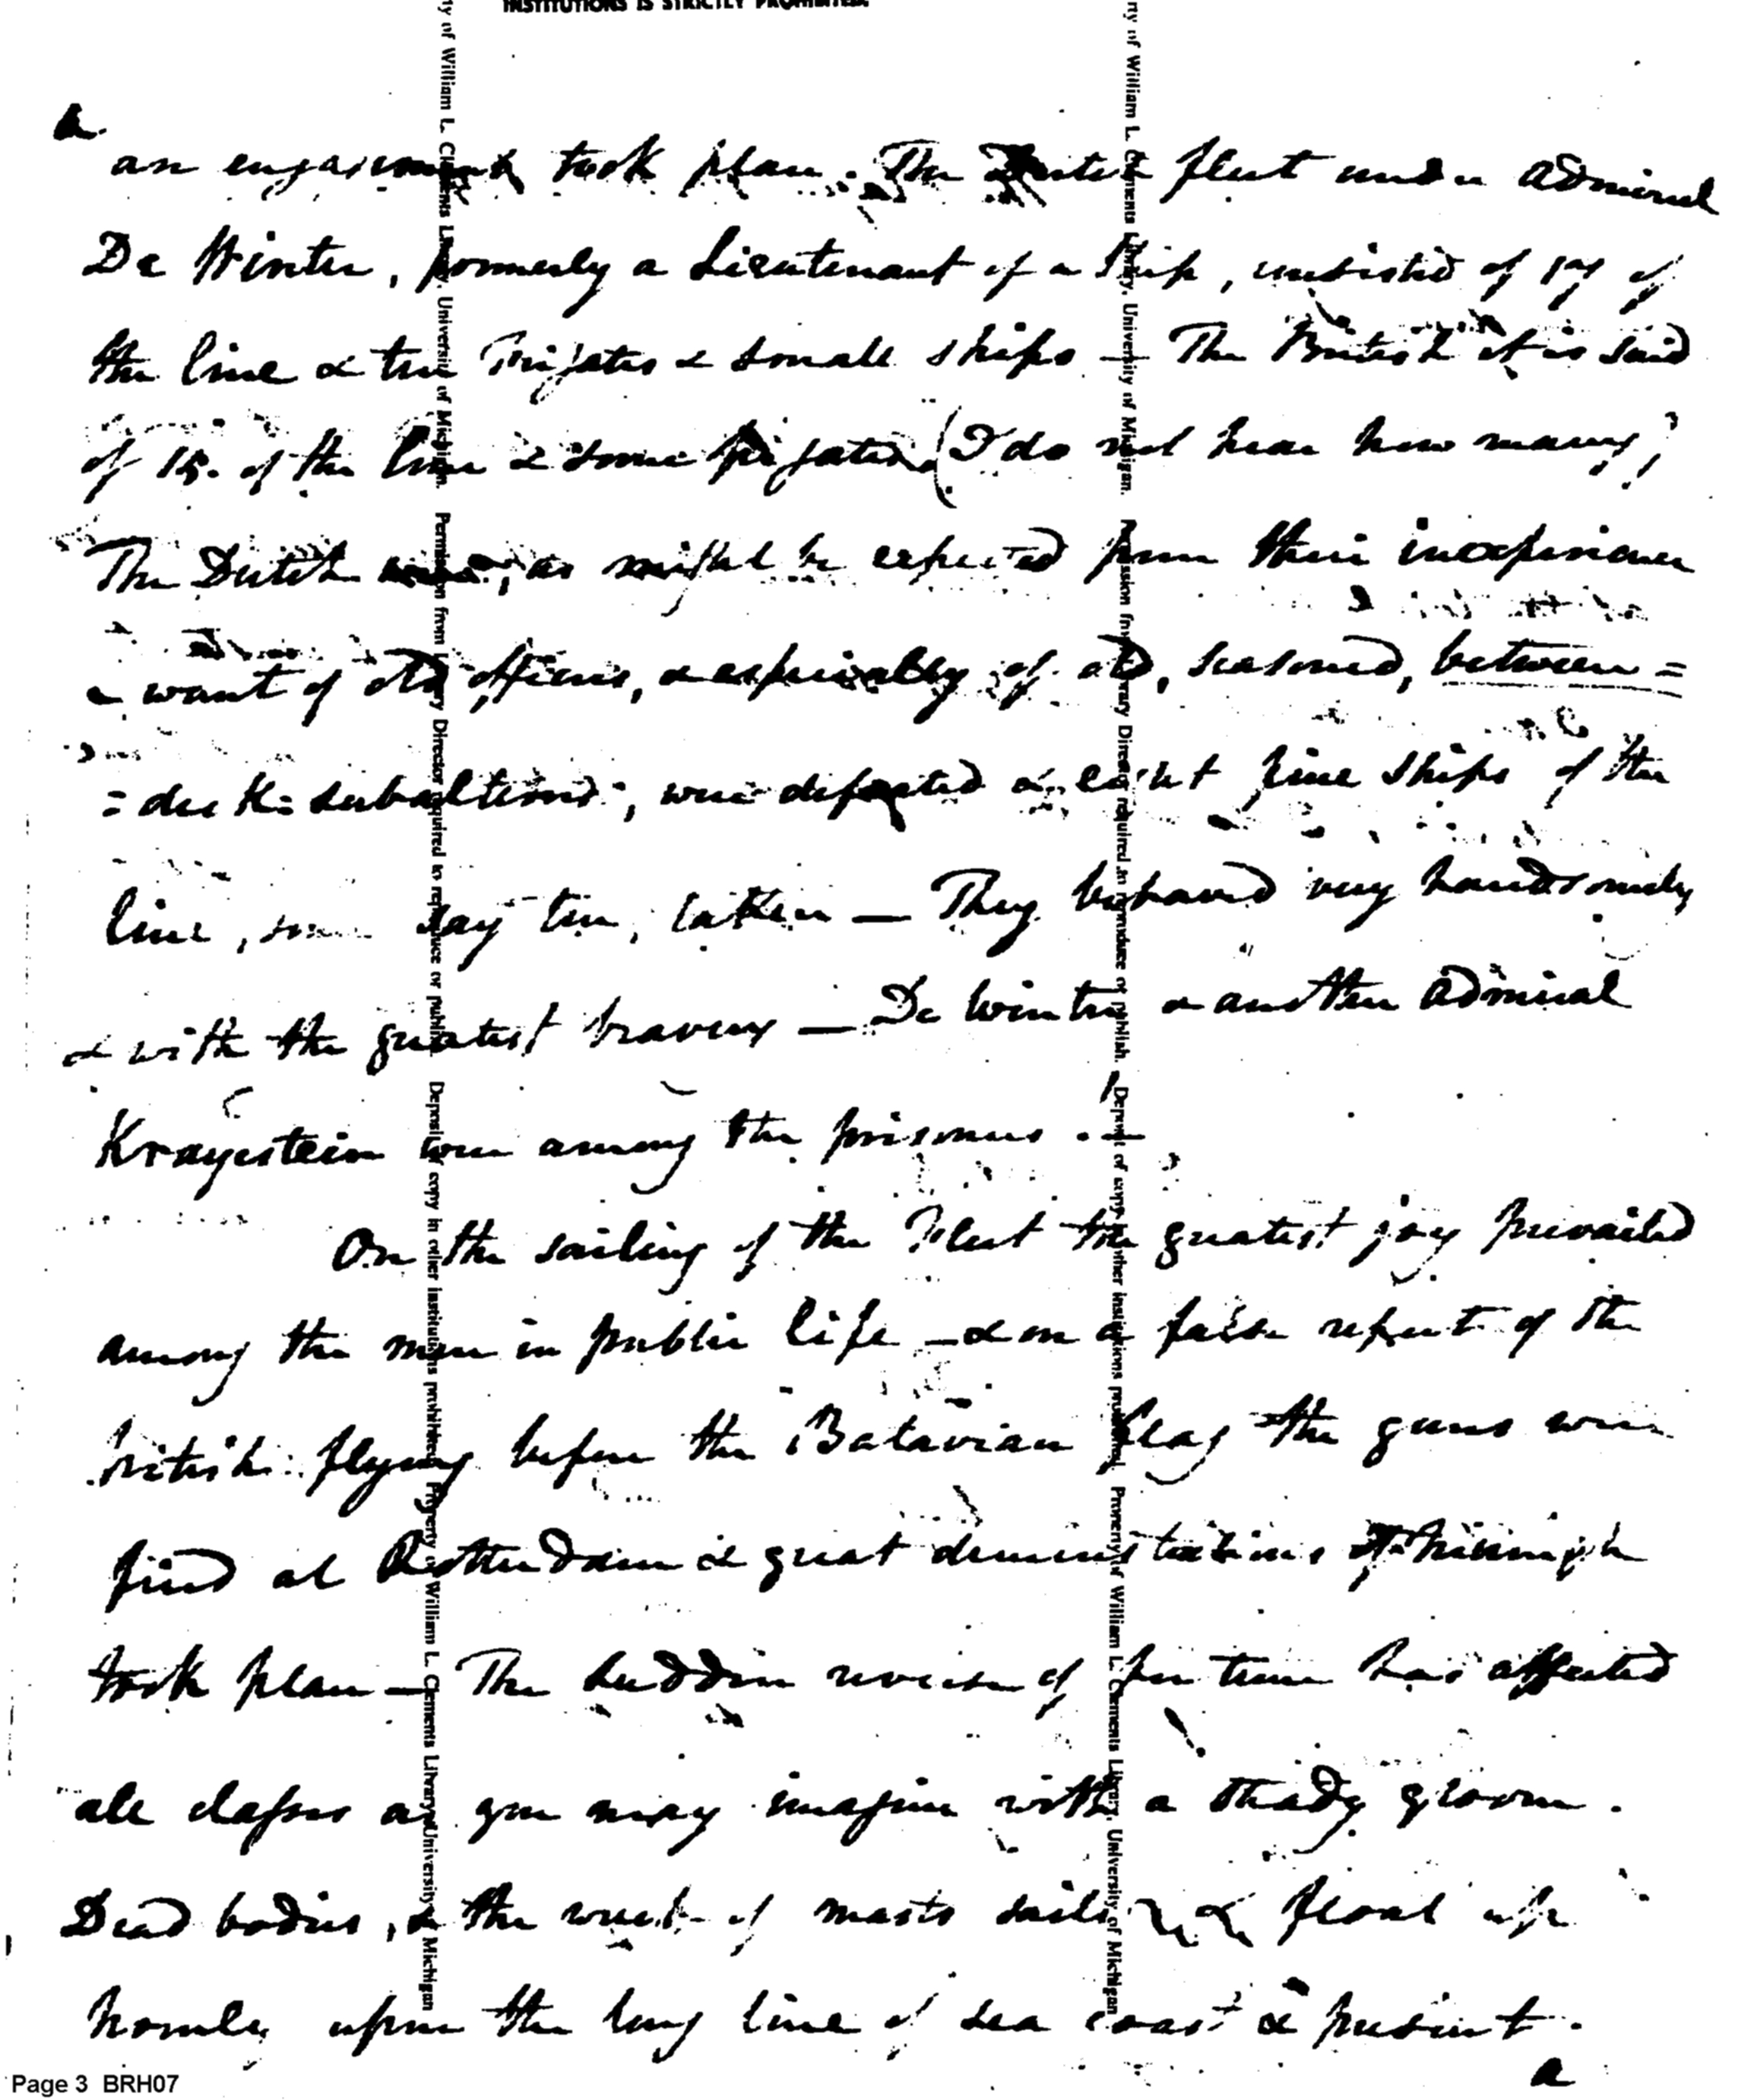 INSTITUTIONS IS STRICTLY PROHIBITED.
a
an engagement took place. The Dutch fleet under Admiral
De Winter, formerly a Lieutenant of a Ship, consisted of 17 of
the line & ten Frigates & small ships — The British it is said
of 15. of the line & some frigates (I do not hear how many)
The Dutch, as might be expected from their inexperience
& want of old officers, & especially of old, seasoned, between=
=deck subalterns, were defeated & eight fine ships of the
line, some say ten, taken — They behaved very handsomely
& with the greatest bravery — De Winter & another Admiral
Krayestein were among the prisoners. —
On the sailing of the Fleet the greatest joy prevailed
among the men in public life — & on a false report of the
british flying before the Batavian flag the guns were
fired at Rotterdam & great demonstrations of triumph
took place — The sudden reverse of fortune has affected
all classes as you may imagine with a steady gloom.
Dead bodies, & the wreck of masts sails &c &c float up
hourly upon the long line of sea coast & present.
a
ty of William L. Clements Library, University of Michigan. Permission from Library Director required to reproduce or publish. Deposit of copy in other institutions prohibited. Property of William L. Clements Library, University of Michigan
rty of William L. Clements Library, University of Michigan. Permission from Library Director required to reproduce or publish. Deposit of copy in other institutions prohibited. Property of William L. Clements Library, University of Michigan
Page 3 BRH07